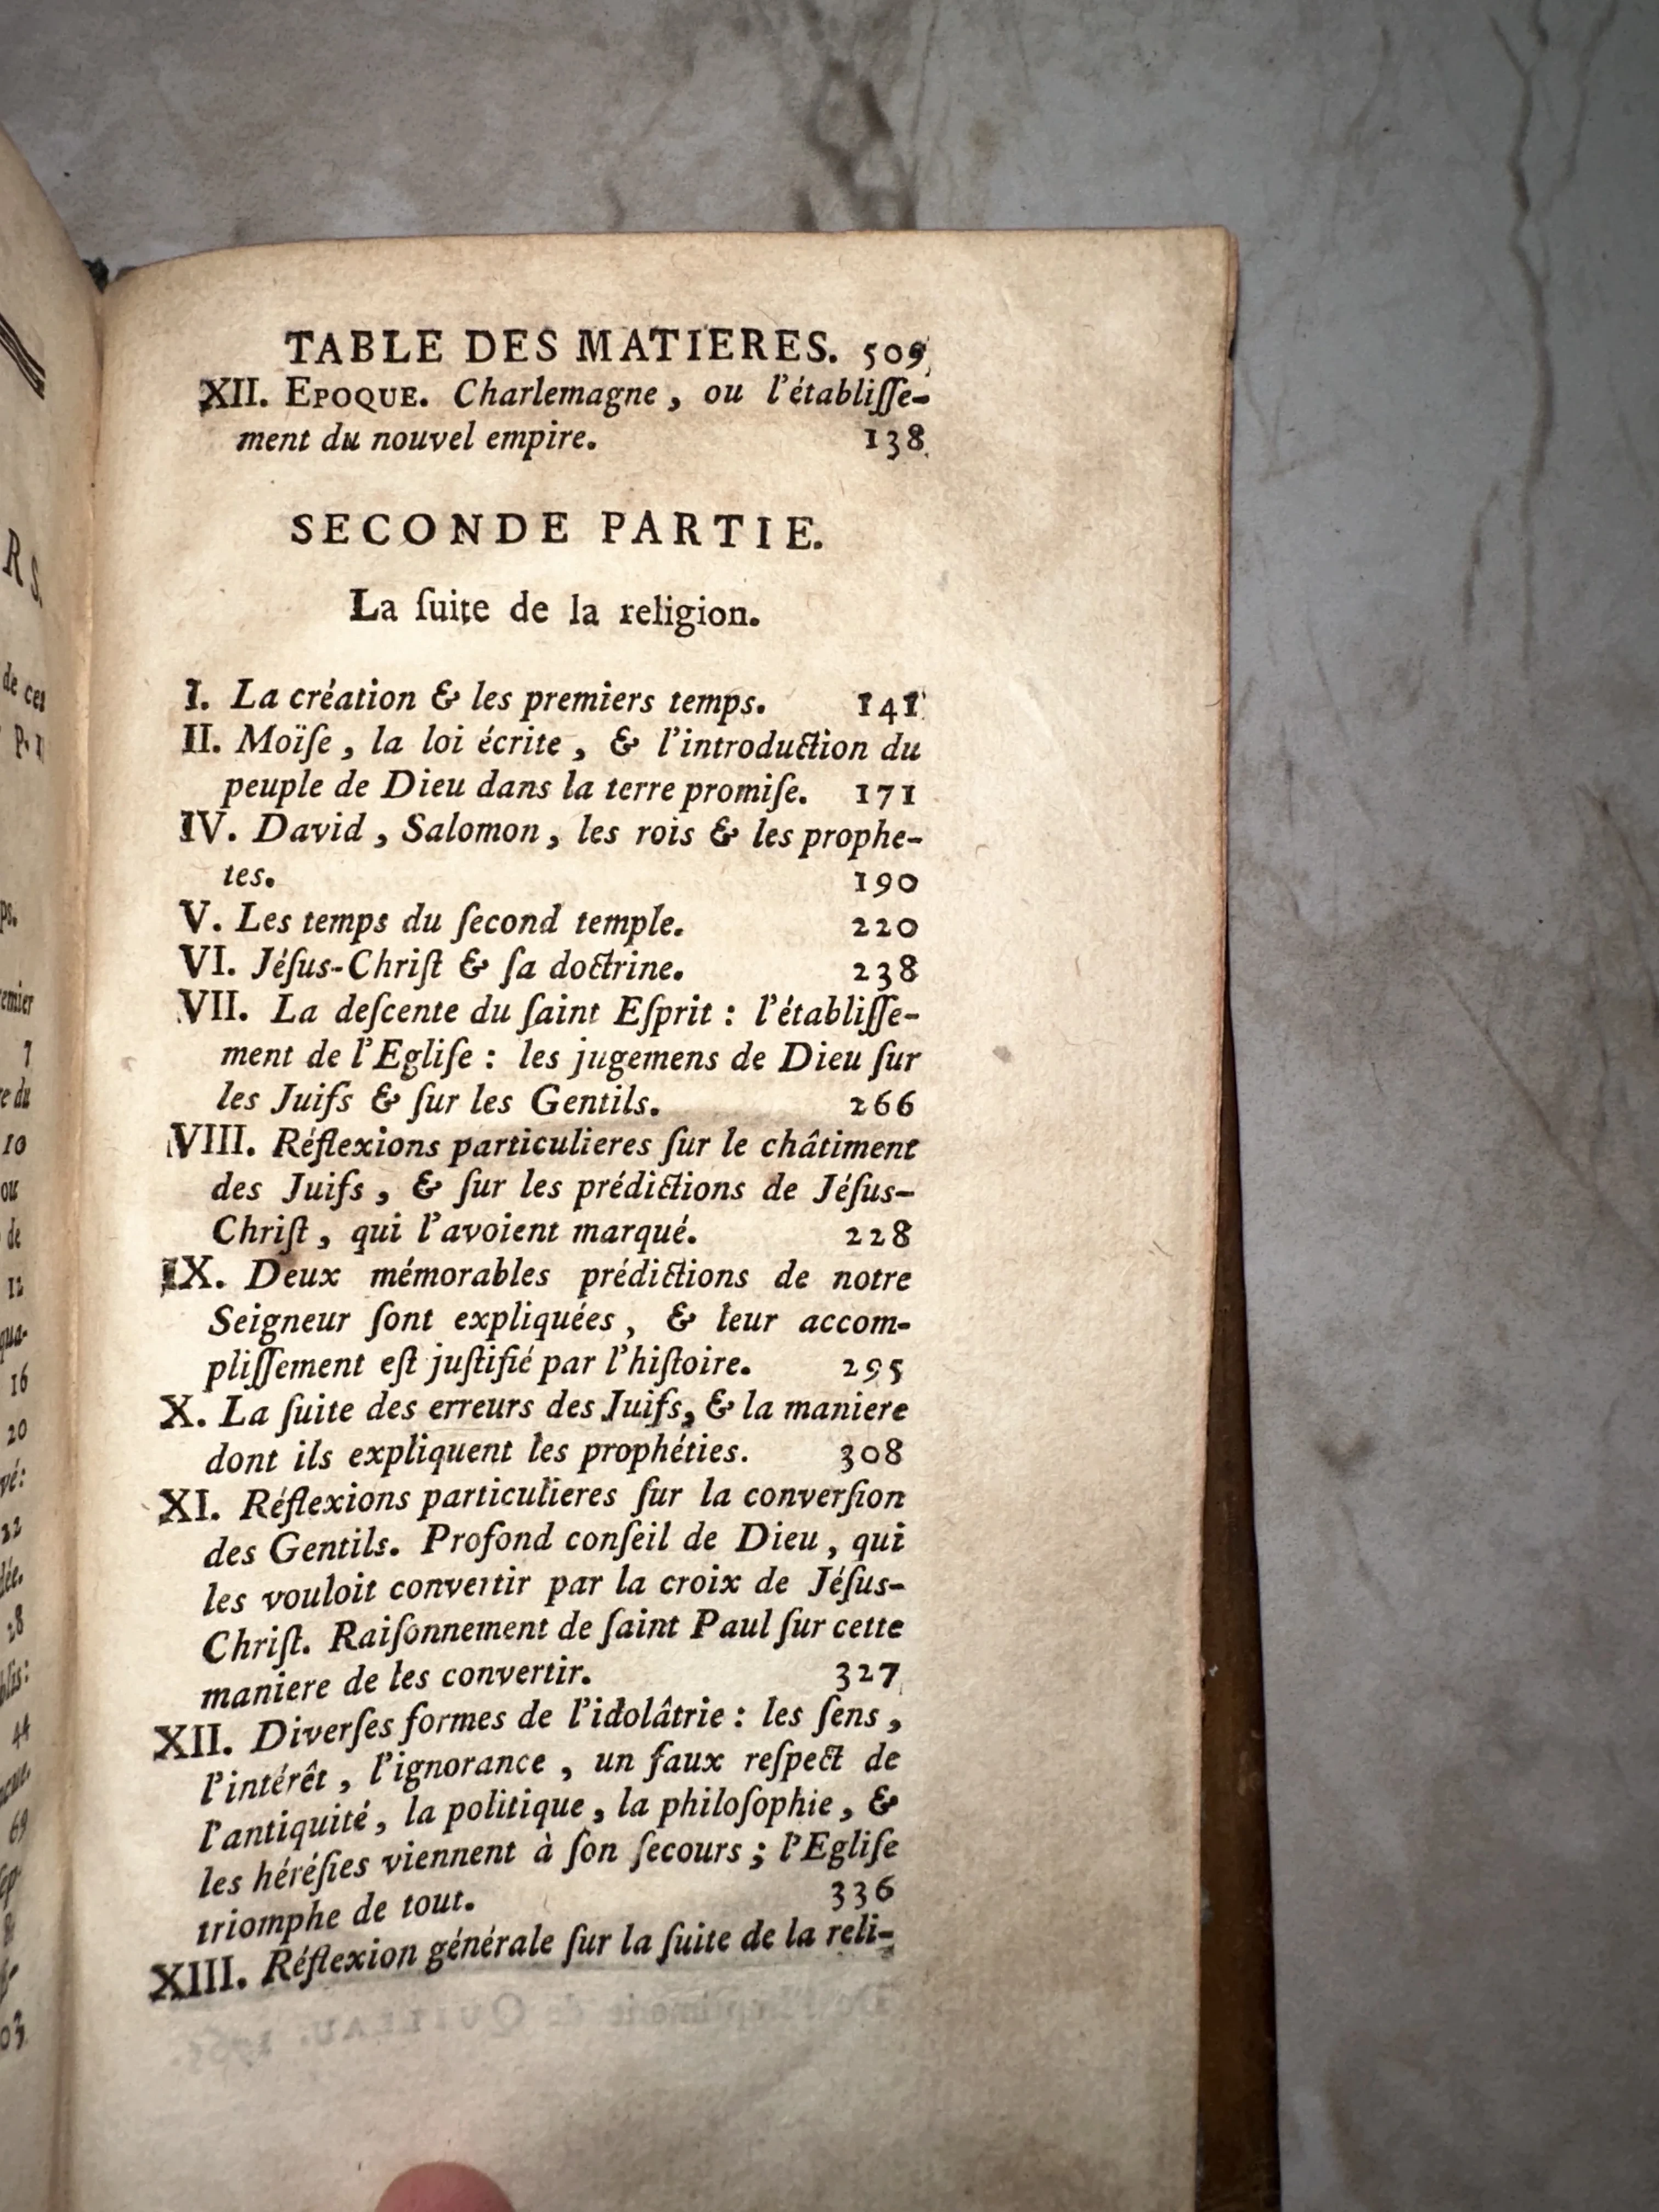 TABLE DES MATIERES. 509
XII. EPOQUE. Charlemagne, ou l'établiſſe-
ment du nouvel empire. 138
SECONDE PARTIE.
La ſuite de la religion.
I. La création & les premiers temps. 141
II. Moïſe, la loi écrite, & l'introduction du
peuple de Dieu dans la terre promiſe. 171
IV. David, Salomon, les rois & les prophe-
tes. 190
V. Les temps du ſecond temple. 220
VI. Jéſus-Chriſt & ſa doctrine. 238
VII. La deſcente du ſaint Eſprit : l'établiſſe-
ment de l'Egliſe : les jugemens de Dieu ſur
les Juifs & ſur les Gentils. 266
VIII. Réflexions particulieres ſur le châtiment
des Juifs, & ſur les prédictions de Jéſus-
Chriſt, qui l'avoient marqué. 228
IX. Deux mémorables prédictions de notre
Seigneur ſont expliquées, & leur accom-
pliſſement eſt juſtifié par l'hiſtoire. 295
X. La ſuite des erreurs des Juifs, & la maniere
dont ils expliquent les prophéties. 308
XI. Réflexions particulieres ſur la converſion
des Gentils. Profond conſeil de Dieu, qui
les vouloit convertir par la croix de Jéſus-
Chriſt. Raiſonnement de ſaint Paul ſur cette
maniere de les convertir. 327
XII. Diverſes formes de l'idolâtrie : les ſens,
l'intérêt, l'ignorance, un faux reſpect de
l'antiquité, la politique, la philoſophie, &
les héréſies viennent à ſon ſecours ; l'Egliſe
triomphe de tout. 336
XIII. Réflexion générale ſur la ſuite de la reli-